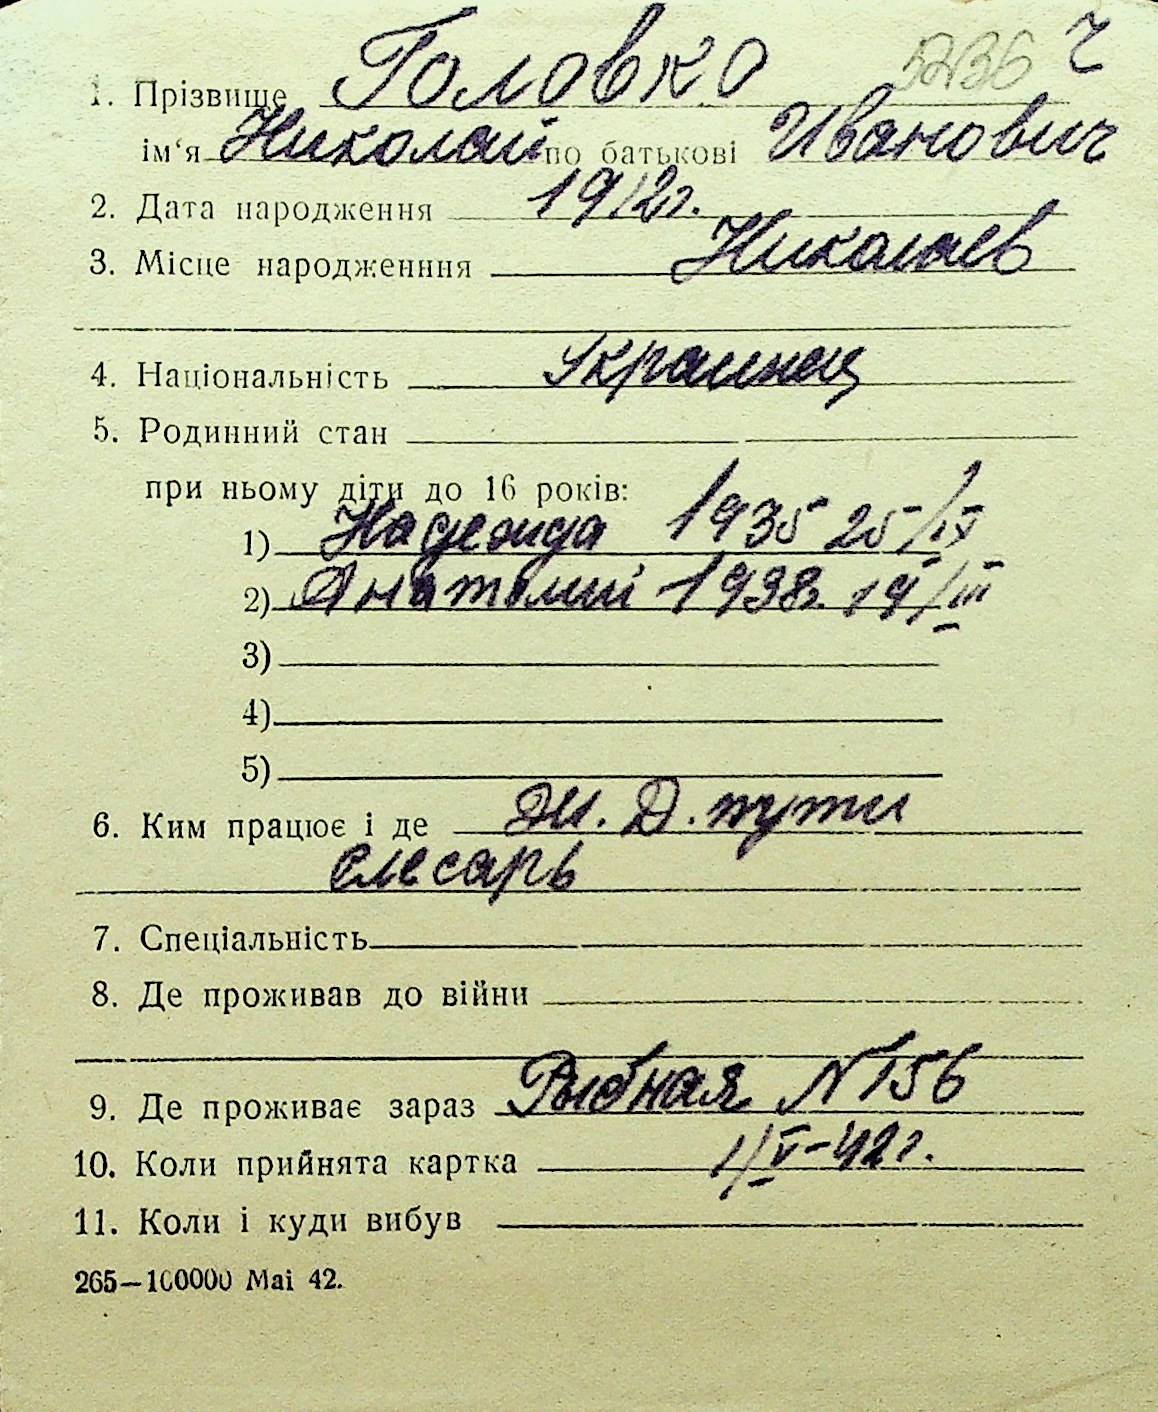 5236 ч
1. Прізвище Головко
ім‘я Николай по батькові Иванович
2. Дата народження 1912г.
3. Місце народженння Николаев
4. Національність Украинец
5. Родинний стан
при ньому діти до 16 років:
1) Надежда 1935 25/IX
2) Анатолий 1938. 14/III
3)
4)
5)
6. Ким працює і де Ж. Д. пути
слесарь
7. Спеціальність
8. Де проживав до війни
9. Де проживає зараз Рыбная N 156
10. Коли прийнята картка 1/V-42г.
11. Коли і куди вибув
265—100000 Mai 42.